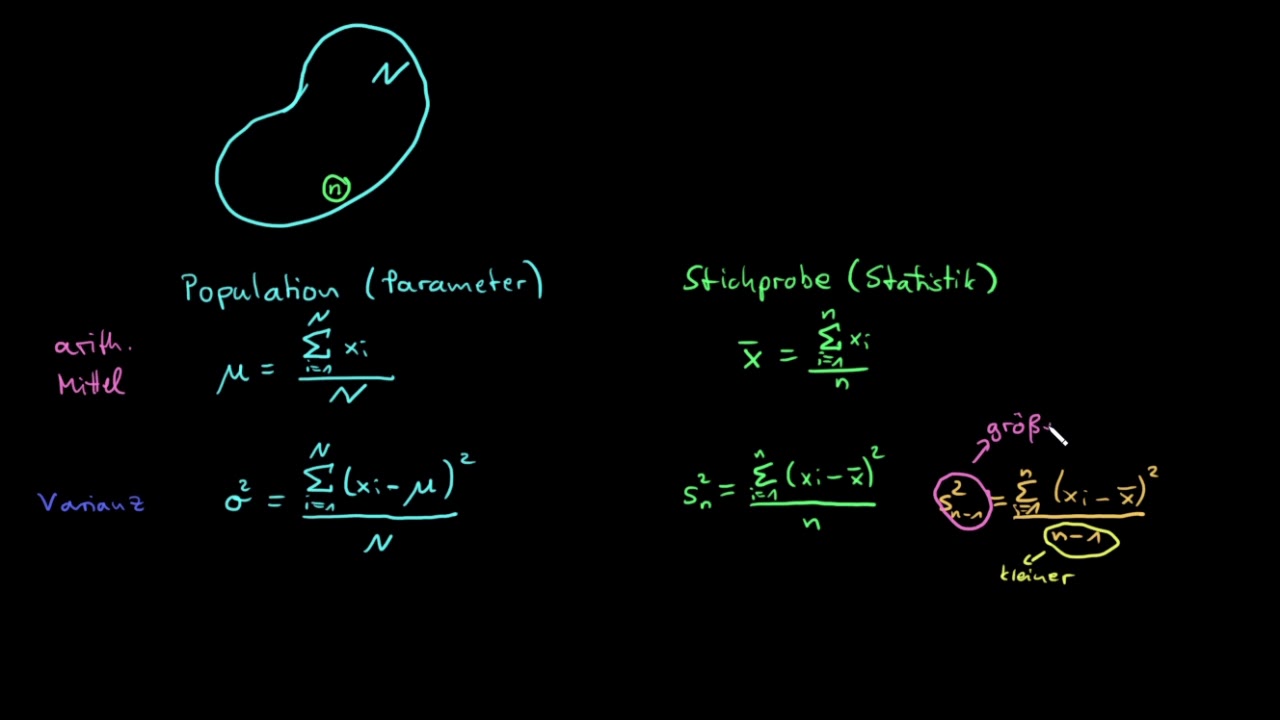 N
n
Population (Parameter)
Stichprobe (Statistik)
arith.
Mittel
μ = \frac{\sum_{i=1}^{N} x_i}{N}
x̄ = \frac{\sum_{i=1}^{n} x_i}{n}
größ
Varianz
σ² = \frac{\sum_{i=1}^{N} (x_i - μ)^2}{N}
s_n^2 = \frac{\sum_{i=1}^{n} (x_i - x̄)^2}{n}
s_{n-1}^2 = \frac{\sum_{i=1}^{n} (x_i - x̄)^2}{n-1}
kleiner